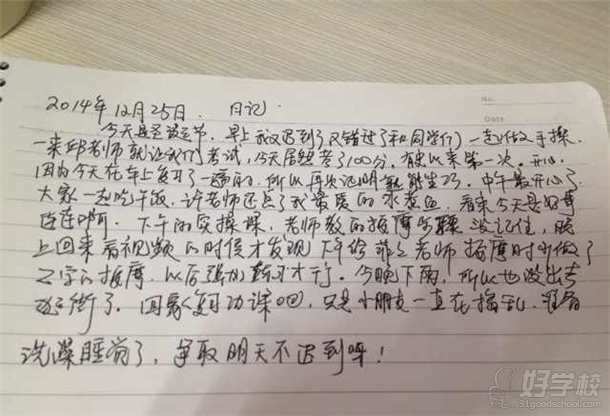 2014年12月25日. 日记.
No.
Date
今天是圣诞节. 早上我又迟到了又错过了和同学们一起做手操.
一来邱老师就让我们考试, 今天居然考了100分. 有史以来第一次. 开心.
因为今天在车上复习了一遍的, 所以再次证明熟能生巧. 中午最开心了
大家一起吃午饭, 许老师还点了我最爱的水煮鱼. 看来今天是好事
连连啊. 下午的实操课, 老师教的按摩步骤没记住, 晚
上回来看视频的时候才发现下午给老师按摩时少做了
之字的按摩, 以后强加练习才行. 今晚下雨, 所以也没出去
逛街了. 回家复习功课, 只是小朋友一直在捣乱. 准备
洗澡睡觉了, 争取明天不迟到呀!
好学校
91goodschool.com